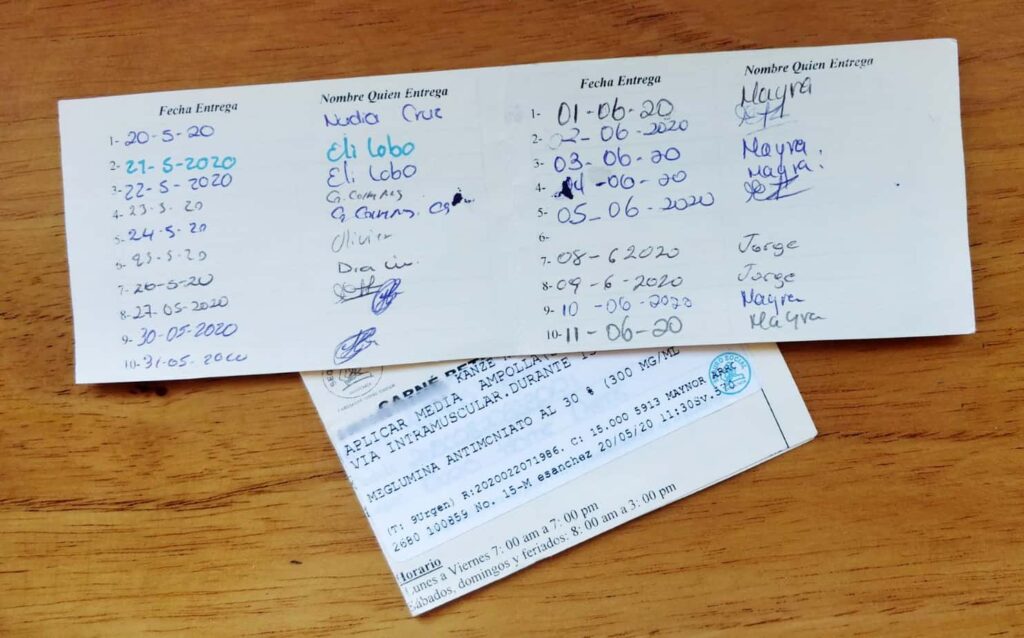 Fecha Entrega Nombre Quien Entrega
1- 20-5-20 Nudia Cruz
2- 21-5-2020 Eli Lobo
3- 22-5-2020 Eli Lobo
4- 23-5-20
5- 24-5-20
6- 25-5-20 Olivier
7- 26-5-20
8- 27-05-2020
9- 30-05-2020
10- 31-05-2020
Fecha Entrega Nombre Quien Entrega
1- 01-06-20 Mayra
2- 02-06-2020
3- 03-06-20 Mayra.
4- 04-06-20 Mayra.
5- 05-06-2020
6-
7- 08-6 2020 Jorge
8- 09-6-2020 Jorge
9- 10-06-2020 Mayra
10- 11-06-20 Mayra
CARNÉ
KANZE
APLICAR MEDIA AMPOLLA
VIA INTRAMUSCULAR.DURANTE 15
MEGLUMINA ANTIMONIATO AL 30 % (300 MG/ML
(T: 9Urgen) R:2020022071986. C: 15.000 5913 MAYNOR
2680 100859 No. 15-M esanchez 20/05/20 11:30
Horario
Lunes a Viernes 7: 00 am a 7: 00 pm
Sábados, domingos y feriados: 8: 00 am a 3: 00 pm